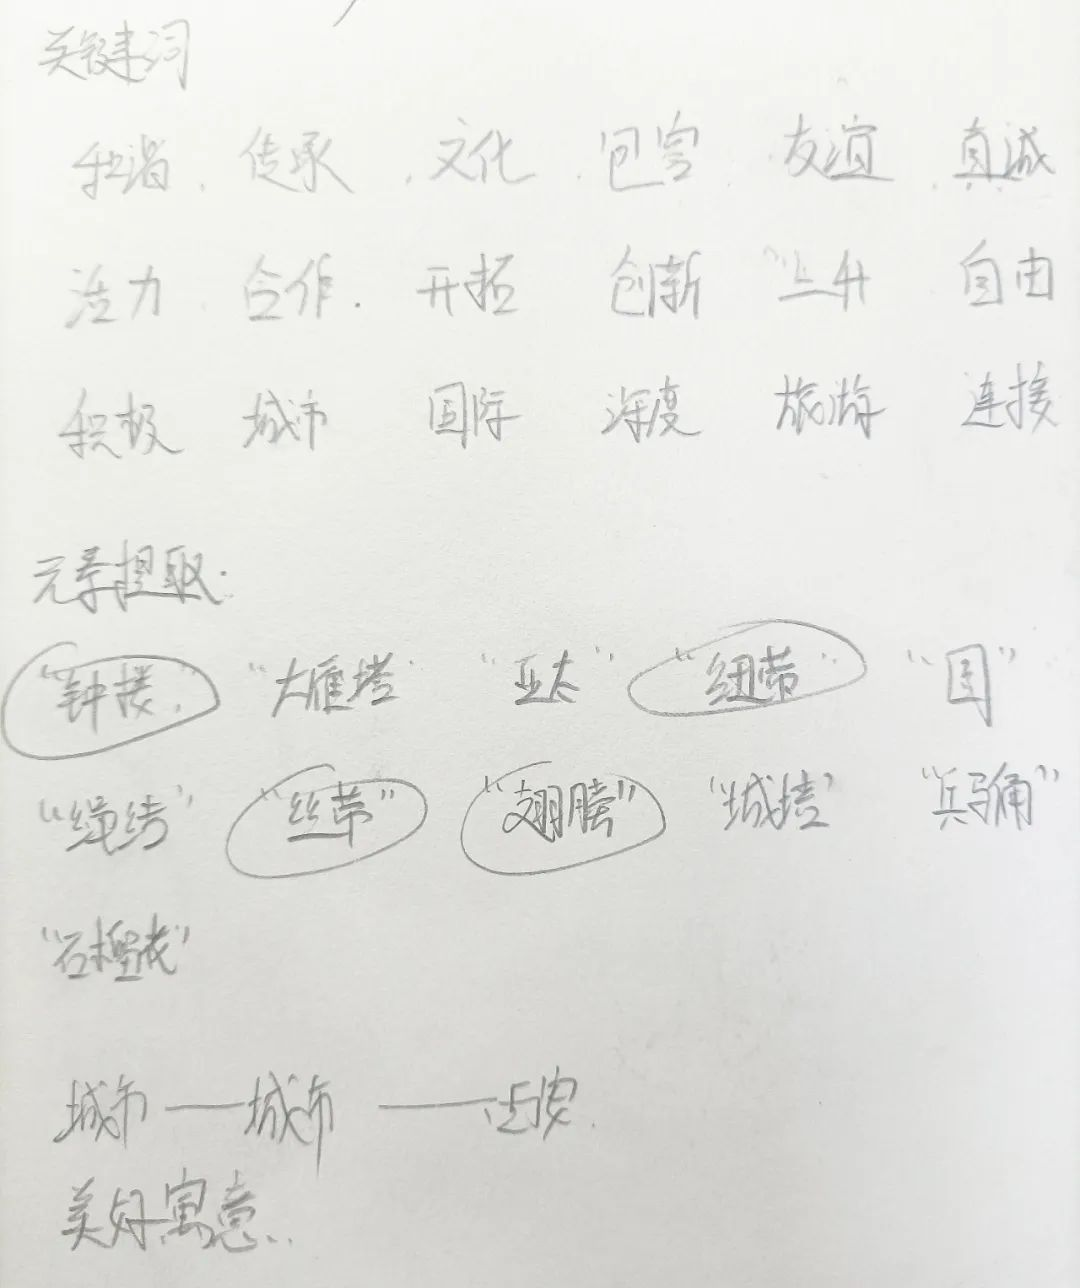 关键词
和谐. 传承. 文化. 包容. 友谊. 真诚
活力. 合作. 开拓 创新 上升 自由
积极 城市 国际 深度 旅游 连接
元素提取.
"钟楼" "大雁塔" "亚太" "纽带" "回"
"丝带" "翅膀" "城墙" "兵马俑"
"石榴花"
城市——城市——
美好寓意.